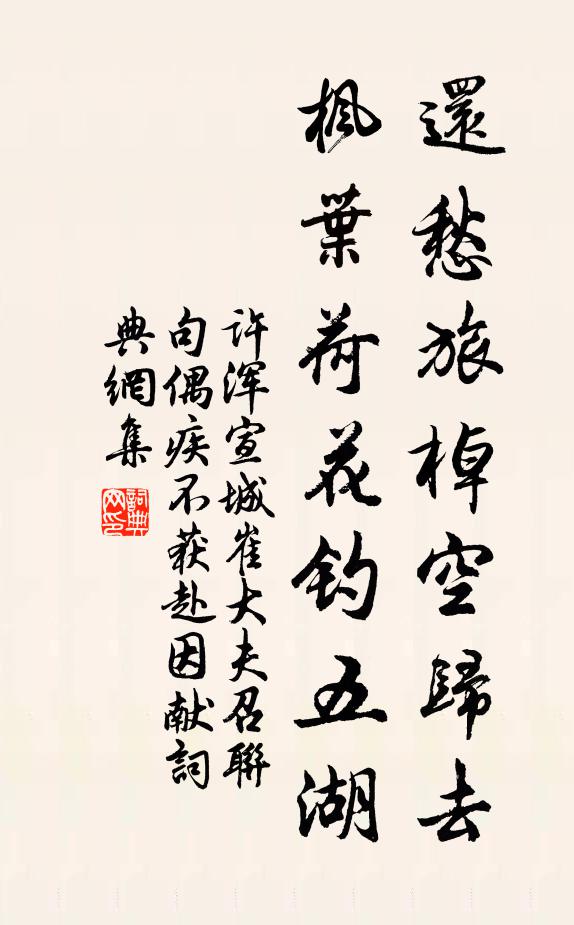 還愁旅棹空歸去
楓葉荷花釣五湖
许渾宣城崔大夫召聯
句偶疾不获赴因献詞
典網集
詞典
网印